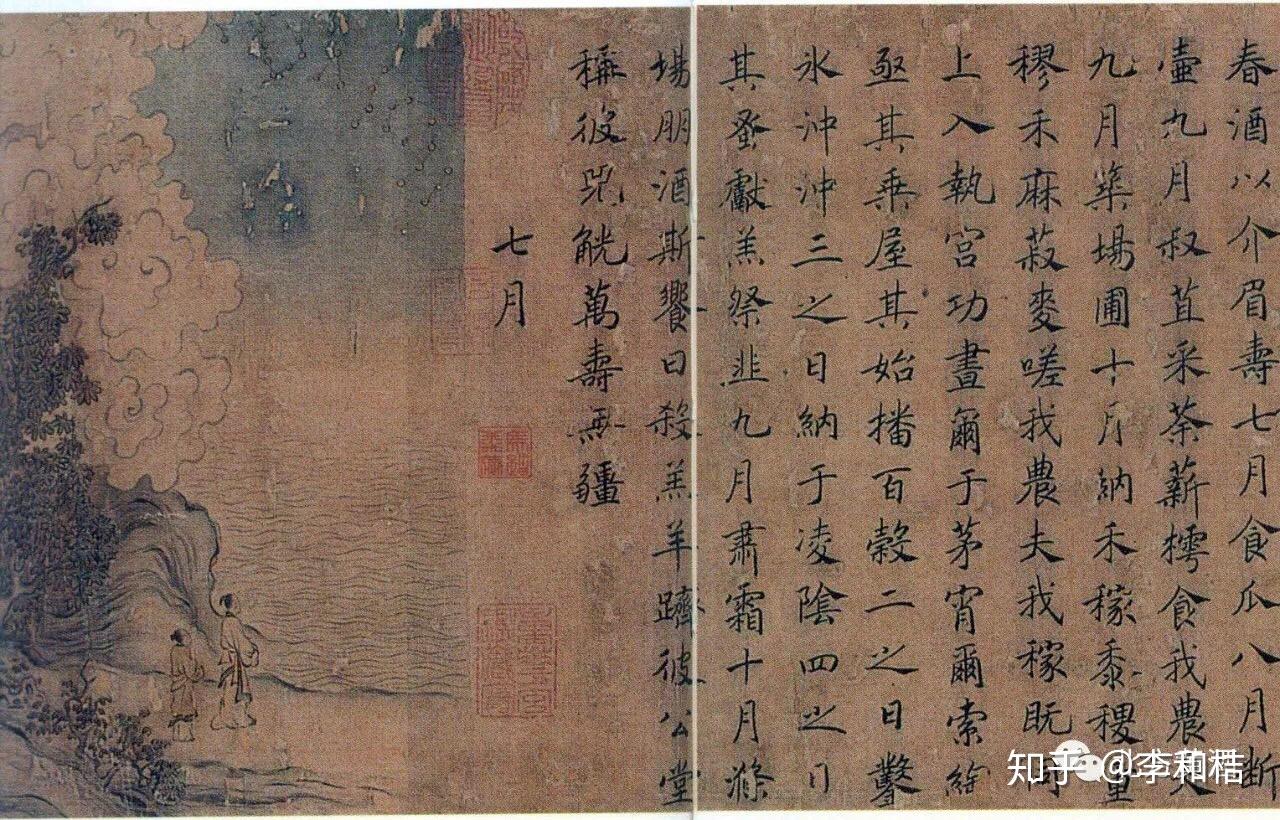 春酒以介眉壽七月食瓜八月斷
壺九月叔苴采荼薪樗食我農夫
九月築場圃十月納禾稼黍稷重
穋禾麻菽麥嗟我農夫我稼既同
上入執宮功晝爾于茅宵爾索綯
亟其乘屋其始播百穀二之日鑿
冰沖沖三之日納于凌陰四之日
其蚤獻羔祭韭九月肅霜十月滌
場朋酒斯饗曰殺羔羊躋彼公堂
稱彼兕觥萬壽無疆
七月
知乎